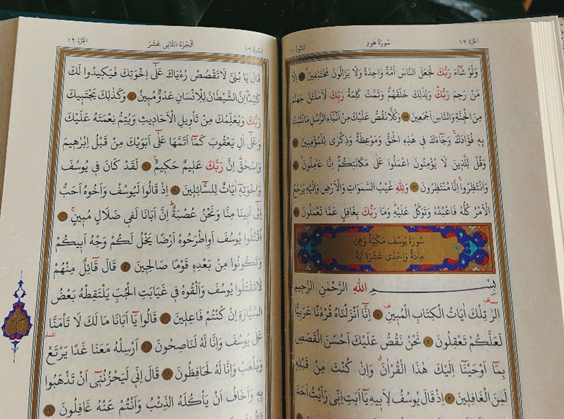 الجزء ١٢
سُورَةُ هُودٍ
وَلَوْ شَاءَ رَبُّكَ لَجَعَلَ النَّاسَ اُمَّةً وَاحِدَةً وَلَا يَزَالُونَ مُخْتَلِفِينَ اِلَّا
مَنْ رَحِمَ رَبُّكَ وَلِذٰلِكَ خَلَقَهُمْ وَتَمَّتْ كَلِمَةُ رَبِّكَ لَاَمْلَـَٔنَّ جَهَنَّمَ
مِنَ الْجِنَّةِ وَالنَّاسِ اَجْمَعِينَ وَكُلًّا نَقُصُّ عَلَيْكَ مِنْ اَنْبَاءِ الرُّسُلِ مَا نُثَبِّتُ
بِهِ فُؤَادَكَ وَجَاءَكَ فِي هٰذِهِ الْحَقُّ وَمَوْعِظَةٌ وَذِكْرٰى لِلْمُؤْمِنِينَ
وَقُلْ لِلَّذِينَ لَا يُؤْمِنُونَ اعْمَلُوا عَلٰى مَكَانَتِكُمْ اِنَّا عَامِلُونَ
وَانْتَظِرُوا اِنَّا مُنْتَظِرُونَ وَلِلّٰهِ غَيْبُ السَّمٰوَاتِ وَالْاَرْضِ وَاِلَيْهِ يُرْجَعُ
الْاَمْرُ كُلُّهُ فَاعْبُدْهُ وَتَوَكَّلْ عَلَيْهِ وَمَا رَبُّكَ بِغَافِلٍ عَمَّا تَعْمَلُونَ
سُورَةُ يُوسُفَ مَكِّيَّةٌ وَهِيَ
مِائَةٌ وَاِحْدٰى عَشْرَةَ اٰيَةً
بِسْمِ اللّٰهِ الرَّحْمٰنِ الرَّحِيمِ
الٓرٰ تِلْكَ اٰيَاتُ الْكِتَابِ الْمُبِينِ اِنَّا اَنْزَلْنَاهُ قُرْاٰنًا عَرَبِيًّا
لَعَلَّكُمْ تَعْقِلُونَ نَحْنُ نَقُصُّ عَلَيْكَ اَحْسَنَ الْقَصَصِ
بِمَا اَوْحَيْنَا اِلَيْكَ هٰذَا الْقُرْاٰنَ وَاِنْ كُنْتَ مِنْ قَبْلِهِ
لَمِنَ الْغَافِلِينَ اِذْ قَالَ يُوسُفُ لِاَبِيهِ يَا اَبَتِ اِنِّي رَاَيْتُ اَحَدَ
السورة ١٢
الجزء الثاني عشر
الجزء ١٢
قَالَ يَا بُنَيَّ لَا تَقْصُصْ رُءْيَاكَ عَلٰى اِخْوَتِكَ فَيَكِيدُوا لَكَ
كَيْدًا اِنَّ الشَّيْطَانَ لِلْاِنْسَانِ عَدُوٌّ مُبِينٌ وَكَذٰلِكَ يَجْتَبِيكَ
رَبُّكَ وَيُعَلِّمُكَ مِنْ تَأْوِيلِ الْاَحَادِيثِ وَيُتِمُّ نِعْمَتَهُ عَلَيْكَ
وَعَلٰى اٰلِ يَعْقُوبَ كَمَا اَتَمَّهَا عَلٰى اَبَوَيْكَ مِنْ قَبْلُ اِبْرٰهِيمَ
وَاِسْحٰقَ اِنَّ رَبَّكَ عَلِيمٌ حَكِيمٌ لَقَدْ كَانَ فِي يُوسُفَ
وَاِخْوَتِهِ اٰيَاتٌ لِلسَّائِلِينَ اِذْ قَالُوا لَيُوسُفُ وَاَخُوهُ اَحَبُّ
اِلٰى اَبِينَا مِنَّا وَنَحْنُ عُصْبَةٌ اِنَّ اَبَانَا لَفِي ضَلَالٍ مُبِينٍ
اُقْتُلُوا يُوسُفَ اَوِ اطْرَحُوهُ اَرْضًا يَخْلُ لَكُمْ وَجْهُ اَبِيكُمْ
وَتَكُونُوا مِنْ بَعْدِهِ قَوْمًا صَالِحِينَ قَالَ قَائِلٌ مِنْهُمْ
لَا تَقْتُلُوا يُوسُفَ وَاَلْقُوهُ فِي غَيَابَتِ الْجُبِّ يَلْتَقِطْهُ بَعْضُ
السَّيَّارَةِ اِنْ كُنْتُمْ فَاعِلِينَ قَالُوا يَا اَبَانَا مَا لَكَ لَا تَأْمَنَّا
عَلٰى يُوسُفَ وَاِنَّا لَهُ لَنَاصِحُونَ اَرْسِلْهُ مَعَنَا غَدًا يَرْتَعْ
وَيَلْعَبْ وَاِنَّا لَهُ لَحَافِظُونَ قَالَ اِنِّي لَيَحْزُنُنِي اَنْ تَذْهَبُوا
بِهِ وَاَخَافُ اَنْ يَأْكُلَهُ الذِّئْبُ وَاَنْتُمْ عَنْهُ غَافِلُونَ